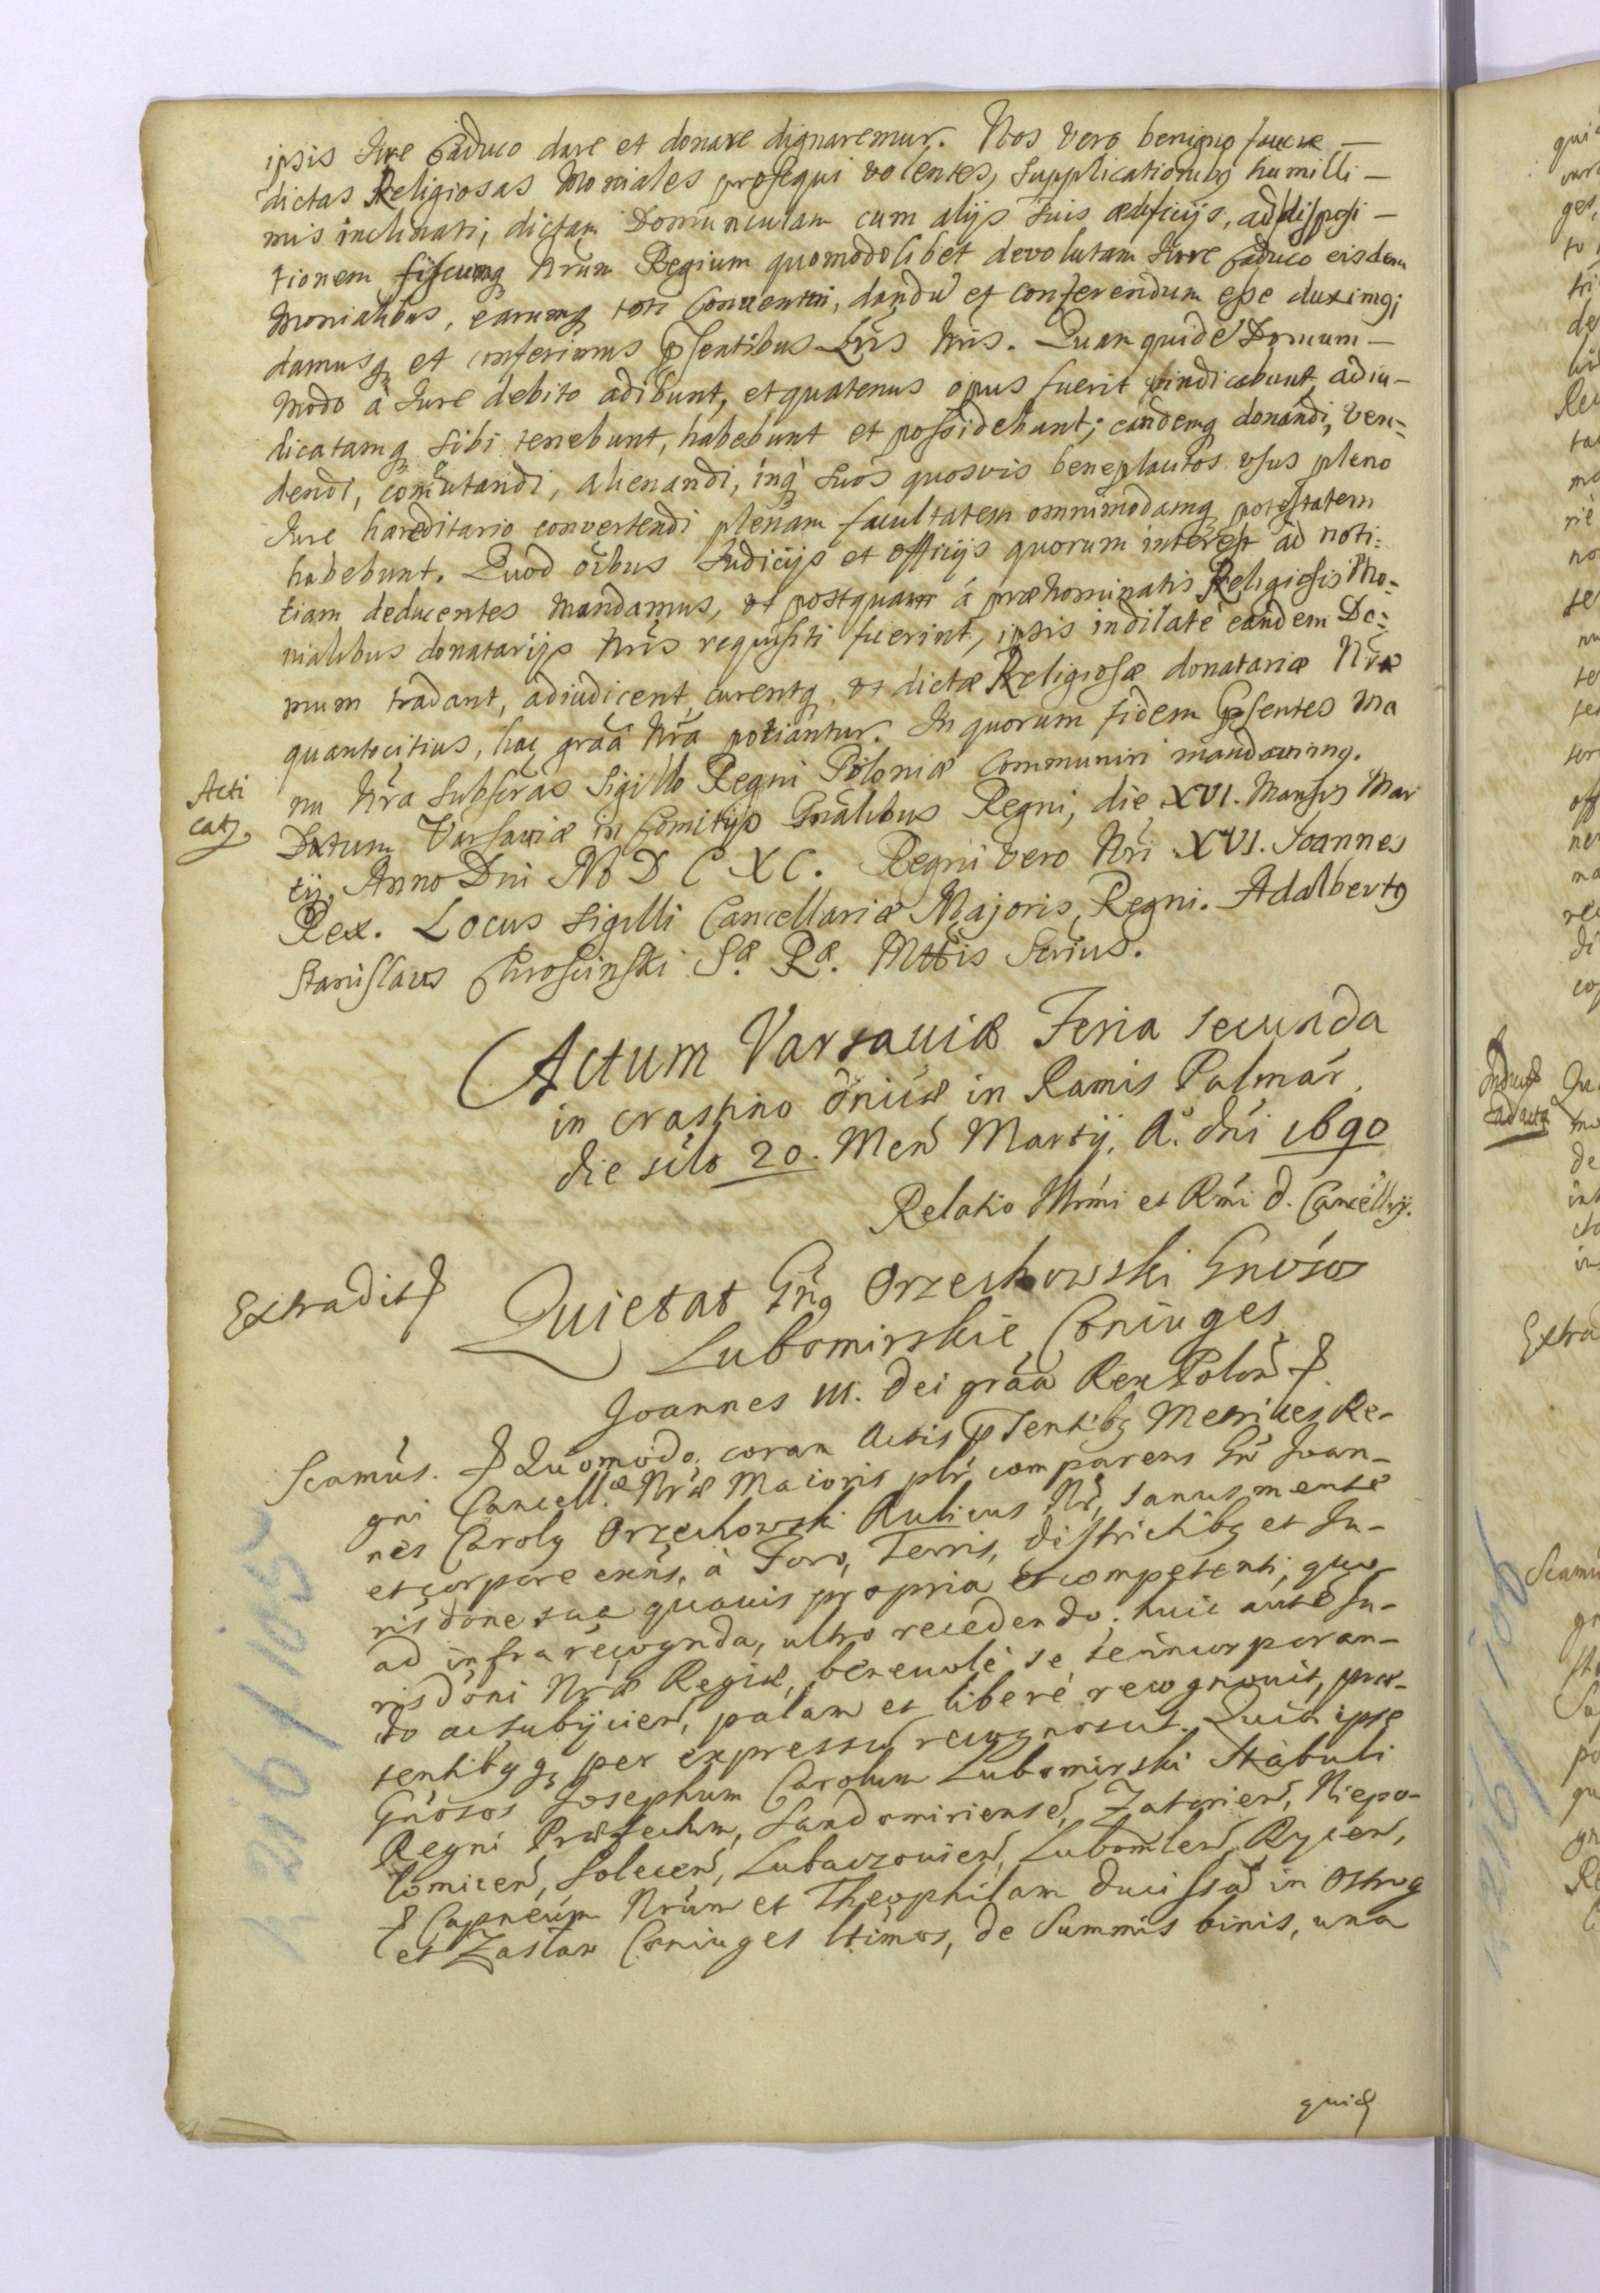 ipsis Jure Caduco dare et donare dignaremur. Nos vero benigno favore
dictas Religiosas Moniales prosequi volentes, Supplicationibus humilli-
mis inclinati, dictam Domunculam cum alijs suis ædificijs, ad disposi-
tionem fiscumq Nrum Regium quomodolibet devolutam Jure Caduco eisdem
Monialibus, earumq toti Conventui, dandu et conferendum esse duximg;
damusq et conferimus Psentibus Lris Nris. Quam quide Domum
modo à Jure debito adibunt, et quatenus opus fuerit vindicabunt, adiu-
dicatamq sibi tenebunt, habebunt et possidebunt; eandemq donandi, ven=
dendi, comutandi, alienandi, inq suos quosvis beneplacitos usus pleno
Jure hæreditario convertendi plenam facultatem omnimodamq potestatem
habebunt. Quod oibus Judicijs et officijs quorum interest ad noti=
tiam deducentes mandamus, ut postquam á prænominatis Religiosis Mo=
nialibus donatarijs Nris requisiti fuerint, ipsis indilatè eandem Do=
mum tradant, adiudicent, curentq, ut dictæ Religiosæ donatariæ Nræ
quantocitius, hac graâ Nrâ potiantur. In quorum fidem Psentes Ma
nu Nra Subscras Sigillo Regni Poloniæ Communiri mandavimg.
Acti
catz
Datum Varsaviæ in Comitijs Gnalibus Regni, die XVI. Mensis Mar
tij, Anno Dni M D C X C. Regni vero Nri XVI. Joannes
Rex. Locus Sigilli Cancellariæ Majoris Regni. Adalbertg
Stanislaus Chroscinski Sæ Ræ. Mttis Scrius.
Actum Varsaviæ Feria secunda
in crastino dnicæ in Ramis Palmar,
die scilt 20. Men Martij, A. dni 1690
Relatio Illrmi et Rmi d. Cancellrij.
Extradit
Quietat Gng Orzechowski Gnosos
Lubomirskie Coniuges
Joannes III. Dei graa Rex Polon
Scamus. Quomodo coram Actis Psentibg Metrices Re-
gni Cancellæ Nræ Maioris plr comparens Gn Joan-
nes Carolg Orzechowski Aulicus Nr, sanus mente
et corpore exns, à Foro, Terris, districtibg et Ju-
risdone sua quavis propria et competenti, quo
ad infra recognda, ultro recedendo, huic aute Ju-
risdoni Nræ Regiæ, benevolè se seincorporan-
do ac subijcien, palam et liberè recognovit, præ-
sentibgq per expressu recognoscit. Quia ipse
Gnosos Josephum Carolum Lubomirski Stabuli
Regni Præfectum, Sandomiriense, Zatorien, Niepo-
lomicen, Solecen, Lubaczovien, Lubomlen, Rycen,
Capneum Nrum et Theophilam Ducissa in Ostrog
et Zaslaw Coniuges ltimos, de Summis binis, una
quid